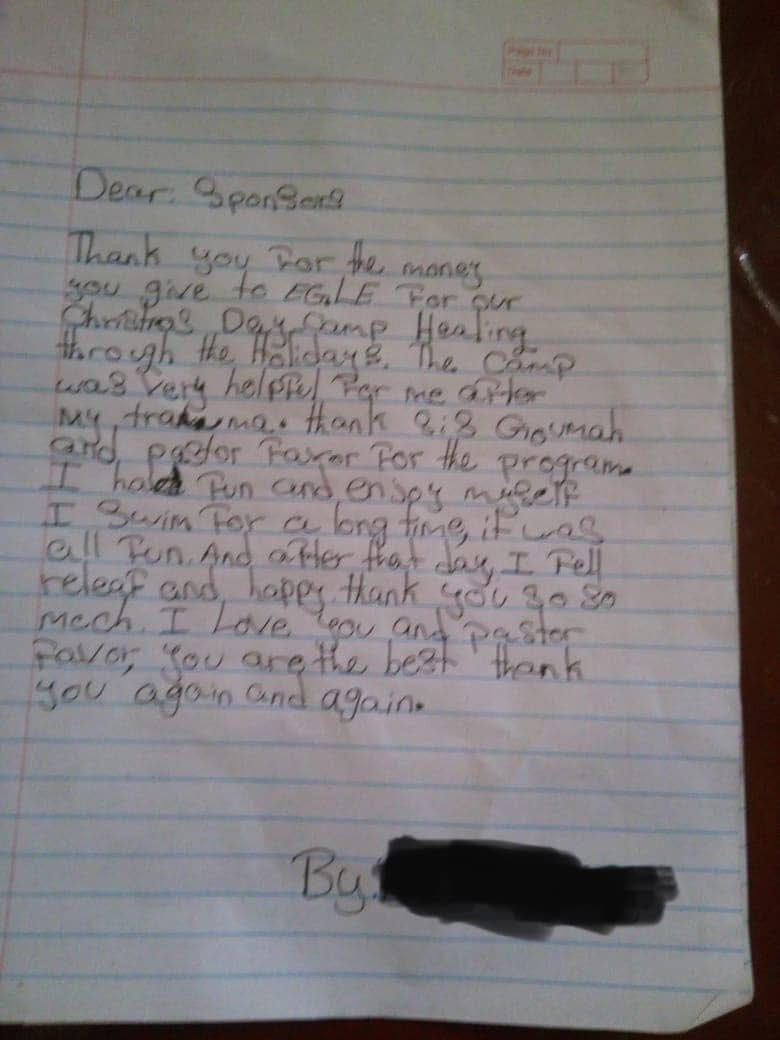 Page No
Date
Dear: Sponsors
Thank you For the money
you give to EGLE For our
Christmas Day Camp Healing
through the Holidays. The Camp
was very helpful For me after
My trauma. thank sis Goumah
and pastor Favor For the program.
I had Fun and enjoy myself
I Swim For a long time, it was
all Fun. And after that day, I Fell
releaf and happy. thank you so so
mech. I Love you and pastor
Favor, you are the best thank
you again and again.
By: